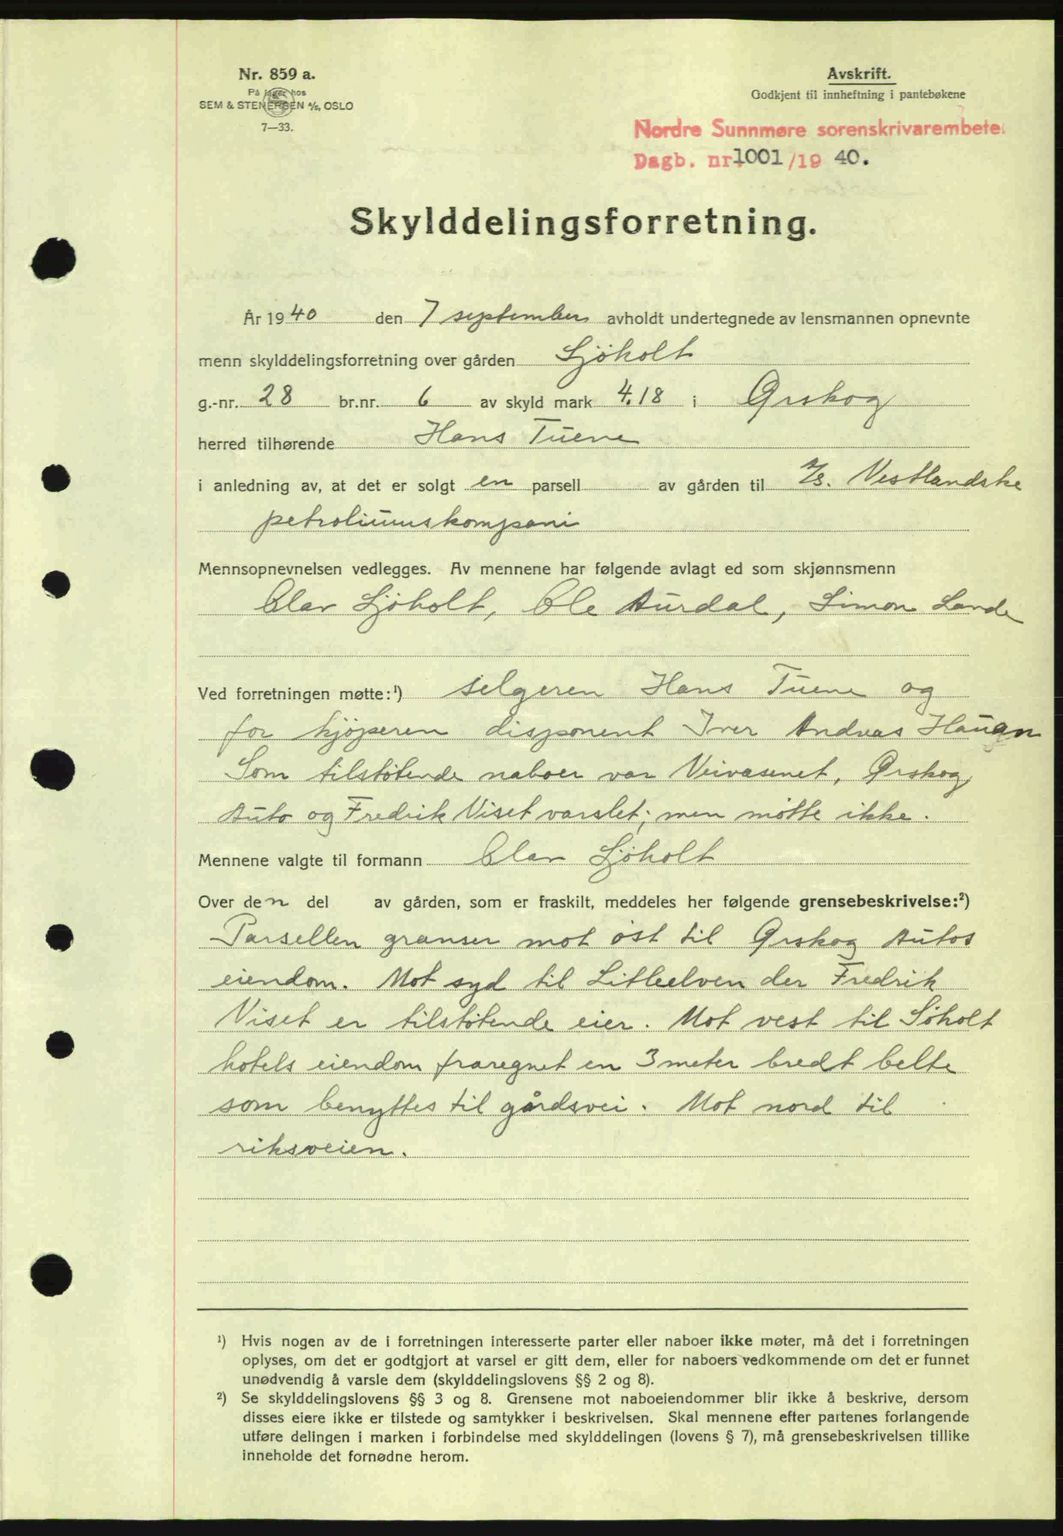 Nr. 859 a.
På lager hos
SEM & STENERSEN A/S, OSLO
7—33.
Avskrift.
Godkjent til innheftning i pantebøkene
Nordre Sunnmøre sorenskrivarembete.
Dagb. nr. 1001/19 40.
Skylddelingsforretning.
År 1940 den 7 september avholdt undertegnede av lensmannen opnevnte
menn skylddelingsforretning over gården Sjöholt
g.-nr. 28 br.nr. 6 av skyld mark 4.18 i Ørskog
herred tilhørende Hans Tuene
i anledning av, at det er solgt en parsell av gården til A/S. Vestlandske
petroliumskompani
Mennsopnevnelsen vedlegges. Av mennene har følgende avlagt ed som skjønnsmenn
Olav Sjöholt, Ole Aurdal, Simon Lande
Ved forretningen møtte:¹) selgeren Hans Tuene og
for kjöperen disponent Iver Andreas Haugen
Som tilstøtende naboer var Veivesenet, Ørskog
Auto og Fredrik Viset varslet; men møtte ikke.
Mennene valgte til formann Olav Sjöholt
Over den del av gården, som er fraskilt, meddeles her følgende grensebeskrivelse:²)
Parsellen grenser mot öst til Ørskog Autos
eiendom. Mot syd til Litleelven der Fredrik
Viset er tilstøtende eier. Mot vest til Sjöholt
hotels eiendom fraregnet en 3 meter bredt belte
som benyttes til gårdsvei. Mot nord til
riksveien.
¹) Hvis nogen av de i forretningen interesserte parter eller naboer ikke møter, må det i forretningen
oplyses, om det er godtgjort at varsel er gitt dem, eller for naboers vedkommende om det er funnet
unødvendig å varsle dem (skylddelingslovens §§ 2 og 8).
²) Se skylddelingslovens §§ 3 og 8. Grensene mot naboeiendommer blir ikke å beskrive, dersom
disses eiere ikke er tilstede og samtykker i beskrivelsen. Skal mennene efter partenes forlangende
utføre delingen i marken i forbindelse med skylddelingen (lovens § 7), må grensebeskrivelsen tillike
inneholde det fornødne herom.